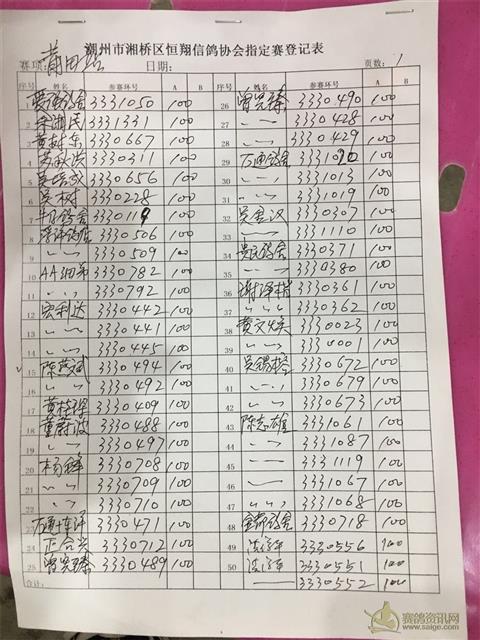 潮州市湘桥区恒翔信鸽协会指定赛登记表
赛项: 莆田站 日期: 页数: 1
序号 姓名 参赛环号 A B 序号 姓名 参赛环号 A B
1 3331050 100 26 曾宪臻 3330490 100
2 李湘民 3331331 100 27 〃 3330428 100
3 黄树东 3330667 100 28 〃 3330429 100
4 3330311 100 29 万通鸽舍 100
5 吴培欢 3330656 100 30 〃 3331013 100
6 吴树 3330228 100 31 〃 3331019 100
7 鸽舍 100 32 吴喜汉 3330307 100
8 3330506 100 33 〃 3331110 100
9 〃 3330509 100 34 鸽舍 3330371 100
10 AA细弟 3330782 100 35 〃 3330380 100
11 〃 3330792 100 36 谢泽楷 3330361 100
12 宏利达 3330442 100 37 〃 3330362 100
13 〃 3330441 100 38 黄文焕 3330023 100
14 〃 3330445 100 39 〃 3330001 100
15 陈燕斌 3330494 100 40 吴锡 3330672 100
16 〃 3330492 100 41 〃 3330679 100
17 黄桂泽 3330409 100 42 〃 3330673 100
18 董蔚波 3330488 100 43 陈志雄 3331061 100
19 〃 3330497 100 44 〃 3331087 100
20 杨峰 3330708 100 45 〃 3331119 100
21 〃 3330709 100 46 〃 3331067 100
22 〃 3330710 100 47 〃 3331068 100
23 3330471 100 48 鸽舍 3330718 100
24 正合兴 3330712 100 49 3330556 100
25 曾宪臻 3330489 100 50 3330551 100
合计: 3330552 100
赛鸽资讯网
www.saige.com